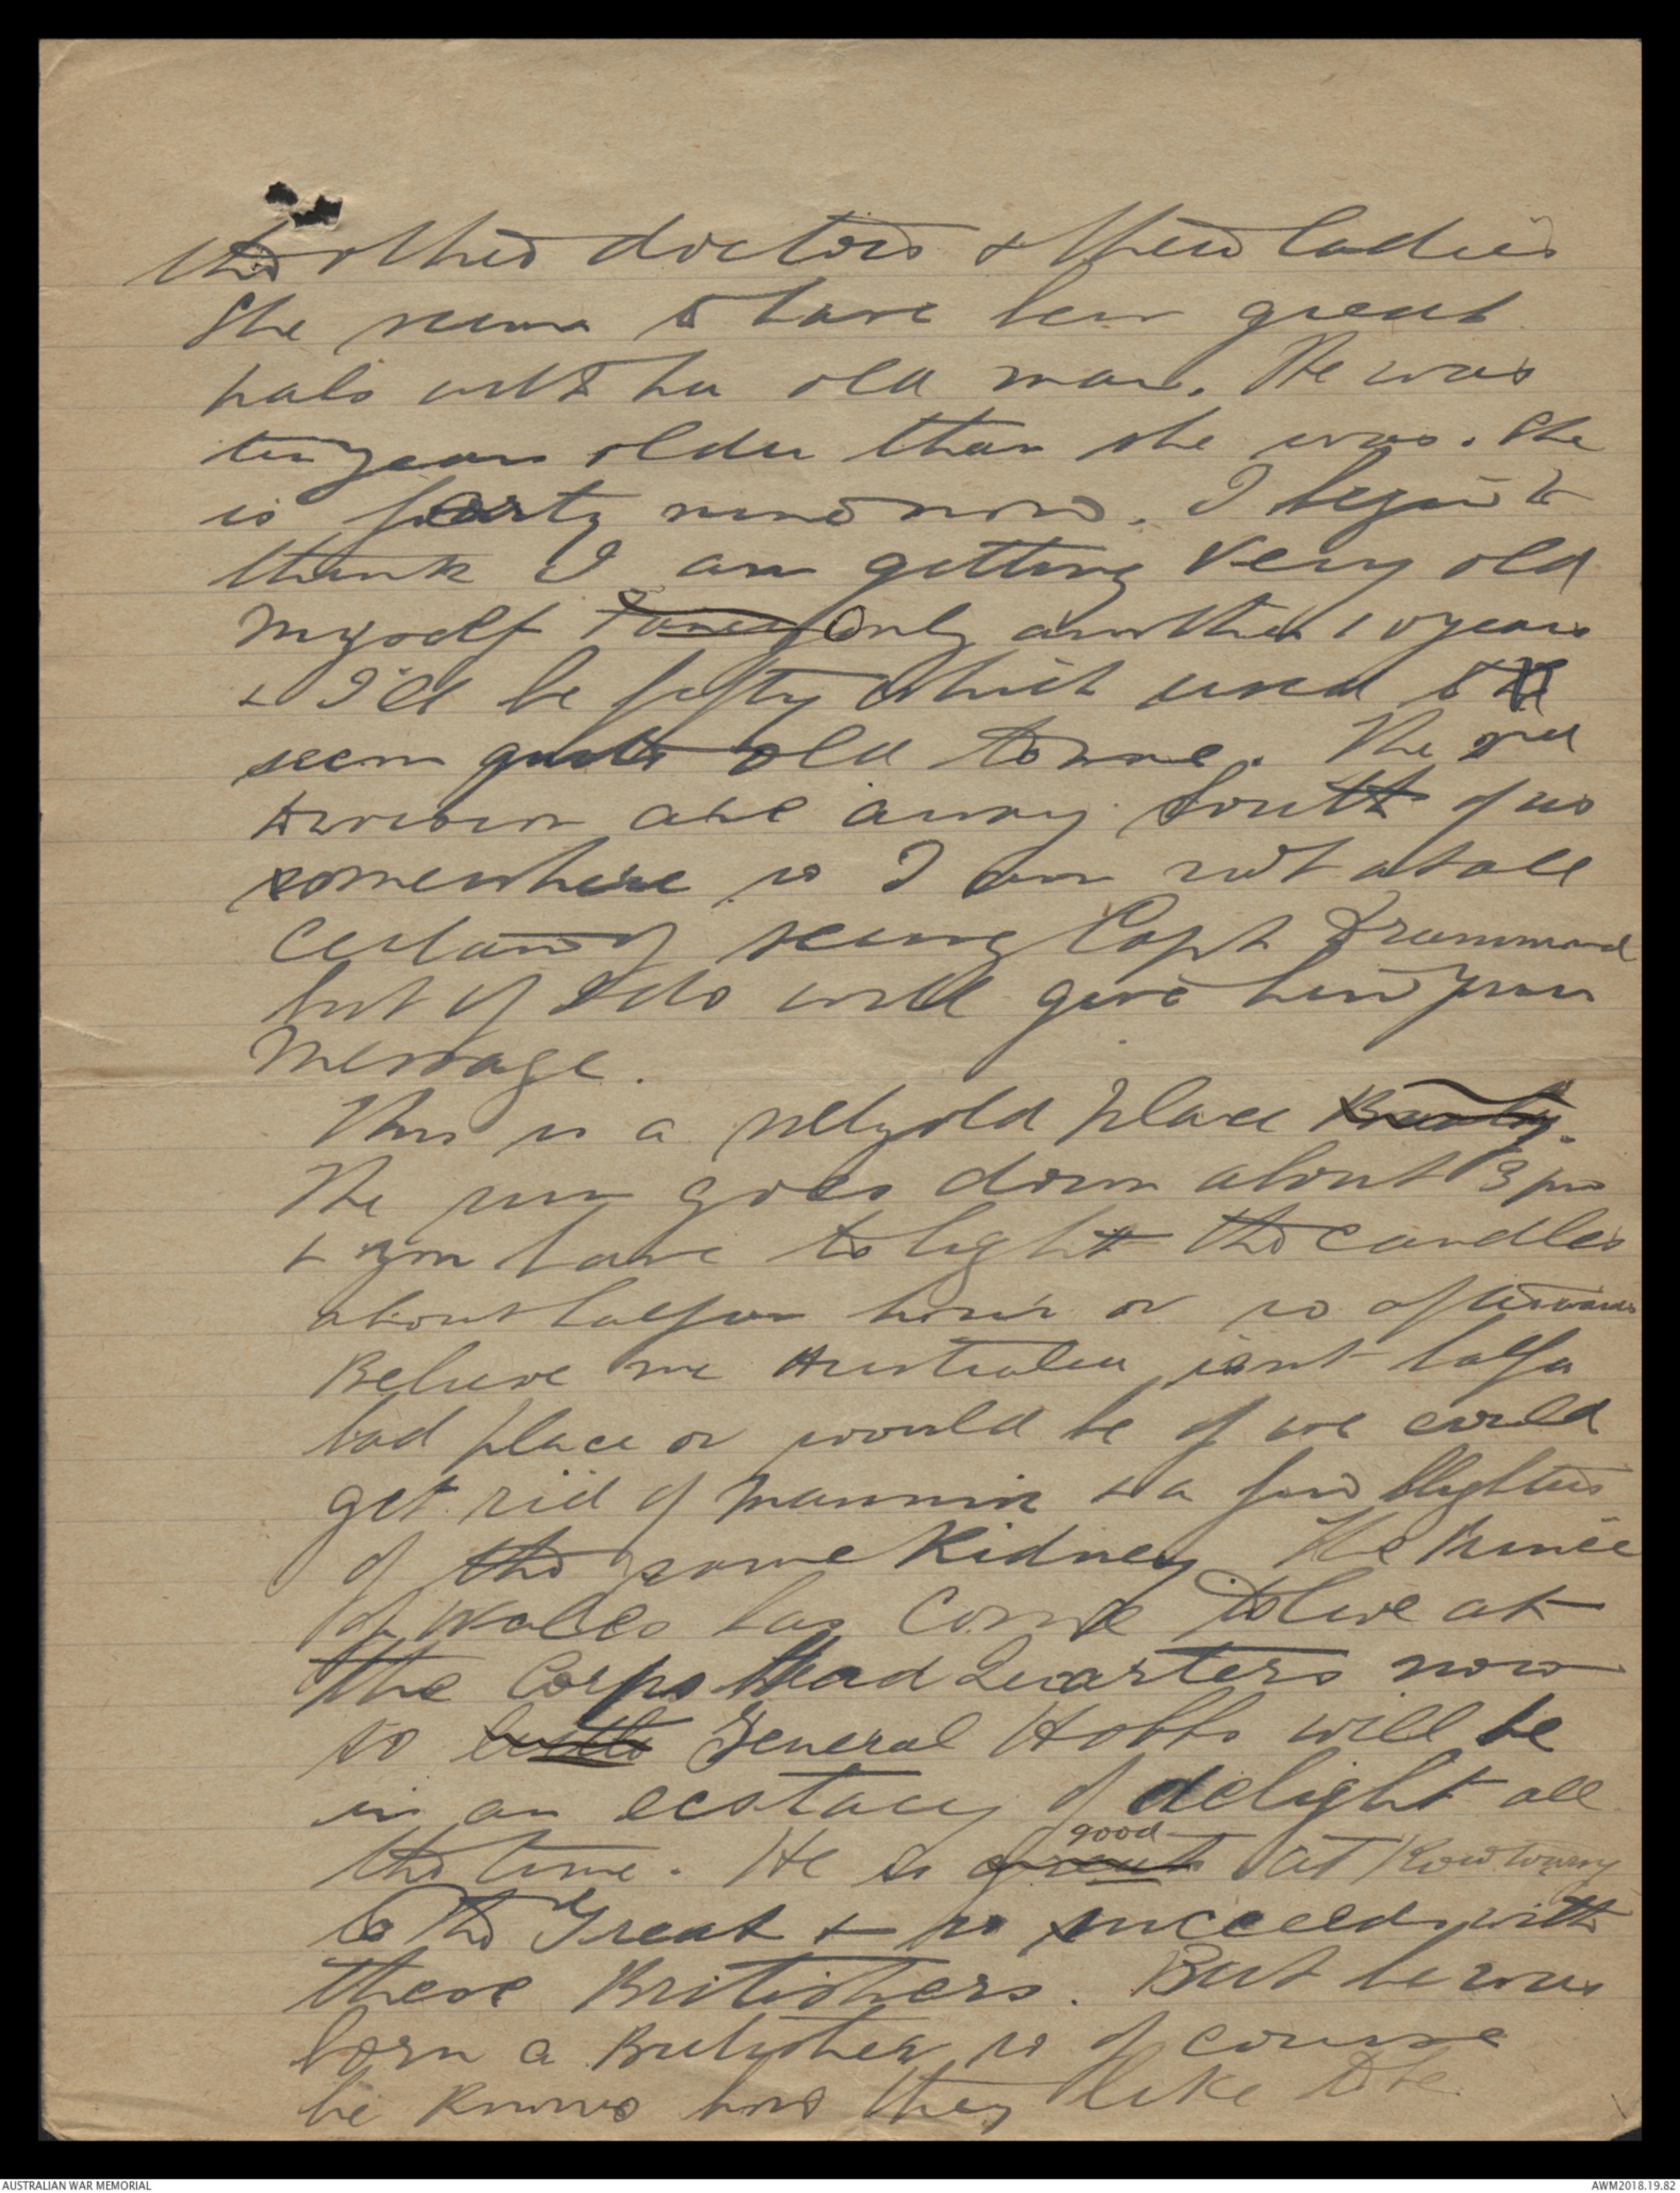 the other doctors & their ladies
She seems to have been great
pals with her old man. He was
ten years older than she was. She
is forty nine now. I begin to
think I am getting very old
myself Only another 10 years
& I'll be fifty which used to
seem quite old to me. The 3rd
Division are away South of us
somewhere so I am not at all
certain of seeing Capt Drummond
but if I do will give him your
message.
This is a old place
The sun goes down about 3 pm
& you have to light the candles
about half an hour or so afterwards
Believe me Australia isnt half a
bad place or would be if we could
get rid of Mannix & a few blighters
of the same Kidney. The Prince
of Wales has come to live at
the Corps Head Quarters now
so General Hobbs will be
in an ecstacy of delight all
the time. He is great good at Kowtowing
to the Great & so succeeds with
these Britishers. But he was
born a Britisher so of course
he knows how they like to be.
AUSTRALIAN WAR MEMORIAL
AWM2018.19.82